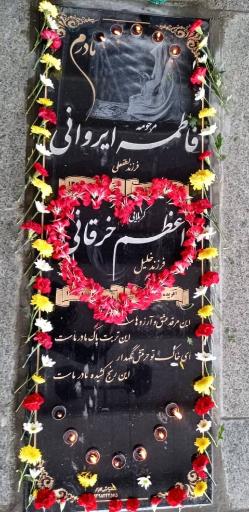 مادرم
مرحومه
فاطمه ایروانی
فرزند فضلعلی
کربلایی
اعظم خرقانی
فرزند خلیل
این مرقد عشق و آرزوهاست
این تربت پاک مادر ماست
ای خاک تو حرمتش نگهدار
این رنج کشیده مادر ماست